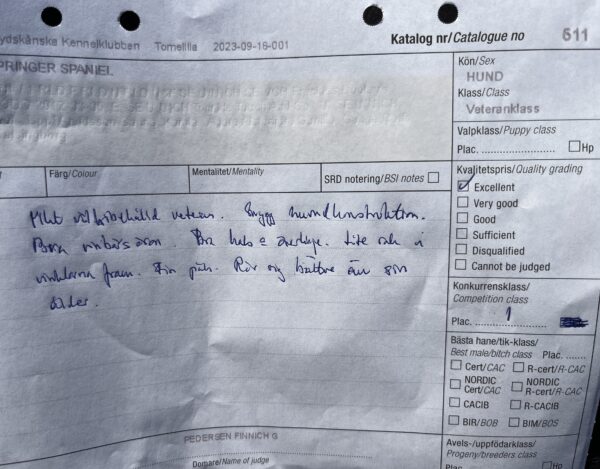 ydskånska Kennelklubben Tomelilla 2023-09-16-001
Katalog nr/Catalogue no 511
PRINGER SPANIEL
Kön/Sex
HUND
Klass/Class
Veteranklass
Valpklass/Puppy class
Plac. Hp
Färg/Colour
Mentalitet/Mentality
SRD notering/BSI notes
Kvalitetspris/Quality grading
Excellent
Very good
Good
Sufficient
Disqualified
Cannot be judged
Mkt välbibehållen veteran. Snygg
Bra. Bra hals & överlinje. Lite
vinklarna fram. Fin päls. Rör sig bättre än sin
ålder.
Konkurrensklass/
Competition class
Plac. 1
Bästa hane/tik-klass/
Best male/bitch class Plac.
Cert/CAC R-cert/R-CAC
NORDIC Cert/CAC NORDIC R-cert/R-CAC
CACIB R-CACIB
BIR/BOB BIM/BOS
Avels-/uppfödarklass/
Progeny/breeders class
Plac. Hp
PEDERSEN FINNICH G
Domare/Name of judge